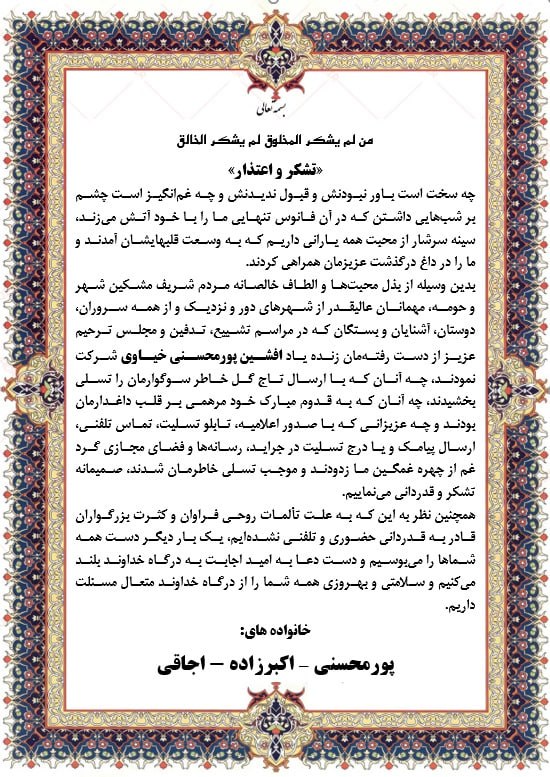 بسمه تعالی
من لم یشکر المخلوق لم یشکر الخالق
«تشکر و اعتذار»
چه سخت است باور نبودنش و قبول ندیدنش و چه غم‌انگیز است چشم
بر شب‌هایی داشتن که در آن فانوس تنهایی ما را با خود آتش می‌زند،
سینه سرشار از محبت همه یارانی داریم که به وسعت قلبهایشان آمدند و
ما را در داغ درگذشت عزیزمان همراهی کردند.
بدین وسیله از بذل محبت‌ها و الطاف خالصانه مردم شریف مشکین شهر
و حومه، مهمانان عالیقدر از شهرهای دور و نزدیک و از همه سروران،
دوستان، آشنایان و بستگان که در مراسم تشییع، تدفین و مجلس ترحیم
عزیز از دست رفته‌مان زنده یاد افشین پورمحسنی خیاوی شرکت
نمودند، چه آنان که با ارسال تاج گل خاطر سوگوارمان را تسلی
بخشیدند، چه آنان که به قدوم مبارک خود مرهمی بر قلب داغدارمان
بودند و چه عزیزانی که با صدور اعلامیه، تابلو تسلیت، تماس تلفنی،
ارسال پیامک و یا درج تسلیت در جراید، رسانه‌ها و فضای مجازی گرد
غم از چهره غمگین ما زدودند و موجب تسلی خاطرمان شدند، صمیمانه
تشکر و قدردانی می‌نماییم.
همچنین نظر به این که به علت تألمات روحی فراوان و کثرت بزرگواران
قادر به قدردانی حضوری و تلفنی نشده‌ایم، یک بار دیگر دست همه
شماها را می‌بوسیم و دست دعا به امید اجابت به درگاه خداوند بلند
می‌کنیم و سلامتی و بهروزی همه شما را از درگاه خداوند متعال مسئلت
داریم.
خانواده های:
پورمحسنی - اکبرزاده – اجاقی